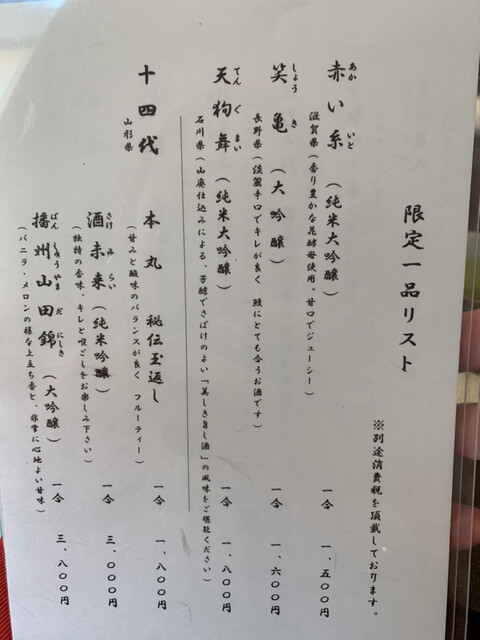 限定一品リスト
※別途消費税を頂戴しております。
赤い糸 (純米大吟醸) 一合 一、五〇〇円
あか いと
滋賀県(香り豊かな花酵母使用。甘口でジューシー)
笑亀 (大吟醸) 一合 一、六〇〇円
しょう き
長野県(淡麗辛口でキレが良く 鰻にとても合うお酒です)
天狗舞 (純米大吟醸) 一合 一、八〇〇円
てん ぐ まい
石川県(山廃仕込みによる、芳醇でさばけのよい「美しき旨し酒」の風味をご堪能ください)
十四代 本丸 秘伝玉返し 一合 一、八〇〇円
山形県
(甘みと酸味のバランスが良く フルーティー)
酒未来 (純米吟醸) 一合 三、〇〇〇円
さけ み らい
(独特の香味、キレと喉ごしをお楽しみ下さい)
播州山田錦 (大吟醸) 一合 三、八〇〇円
ばん しゅうやま だ にしき
(バニラ・メロンの様な上立ち香と、非常に心地よい甘味)